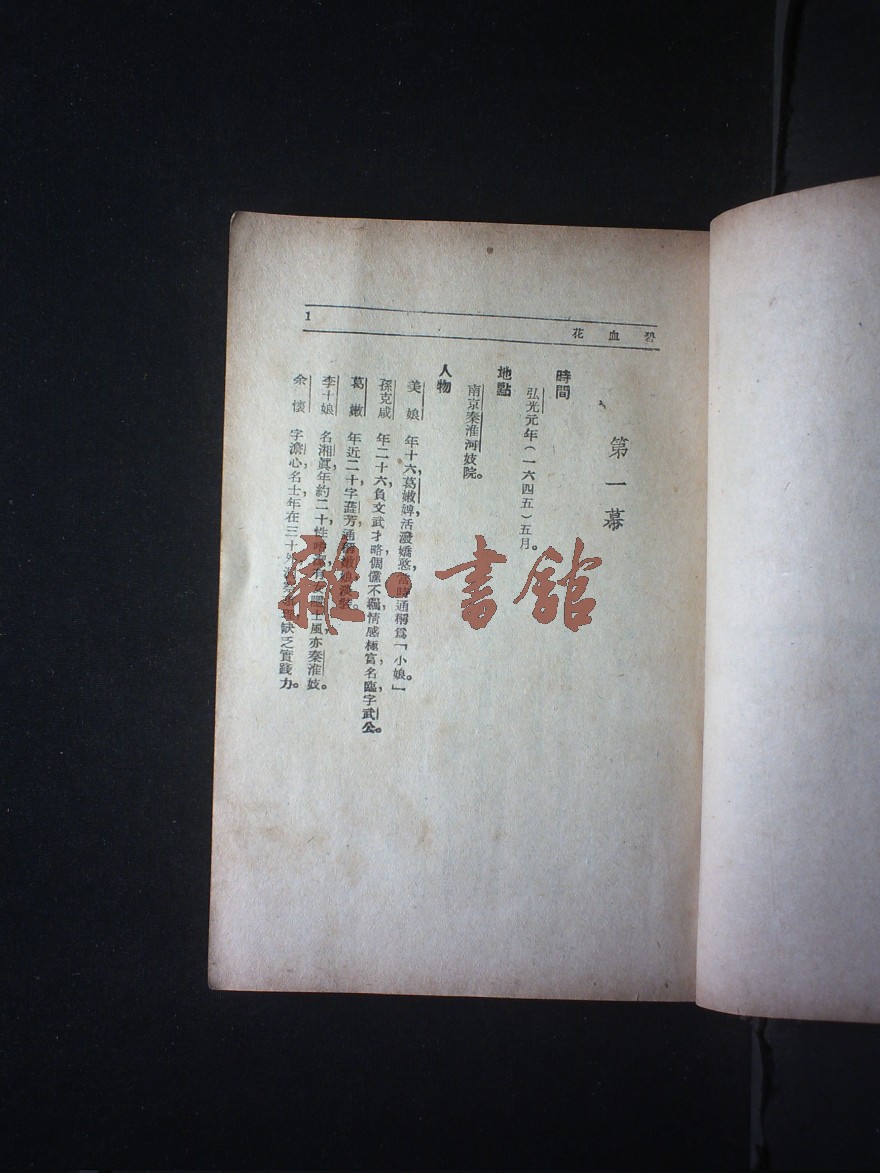 碧血花
1
第一幕
時間
弘光元年(一六四五)五月。
地點
南京秦淮河妓院。
人物
美娘 年十六，葛嫩婢活潑嬌憨，當時通稱爲「小娘。」
孫克咸 年二十六負文武才略倜儻不羈，情感極富，名臨，字武公。
葛嫩 年近二十字蕋芳，通稱嫩娘
李十娘 名湘眞，年約二十性 風亦秦淮妓。
余懷 字澹心，名士，年在三十 缺乏實踐力。
雜·書館